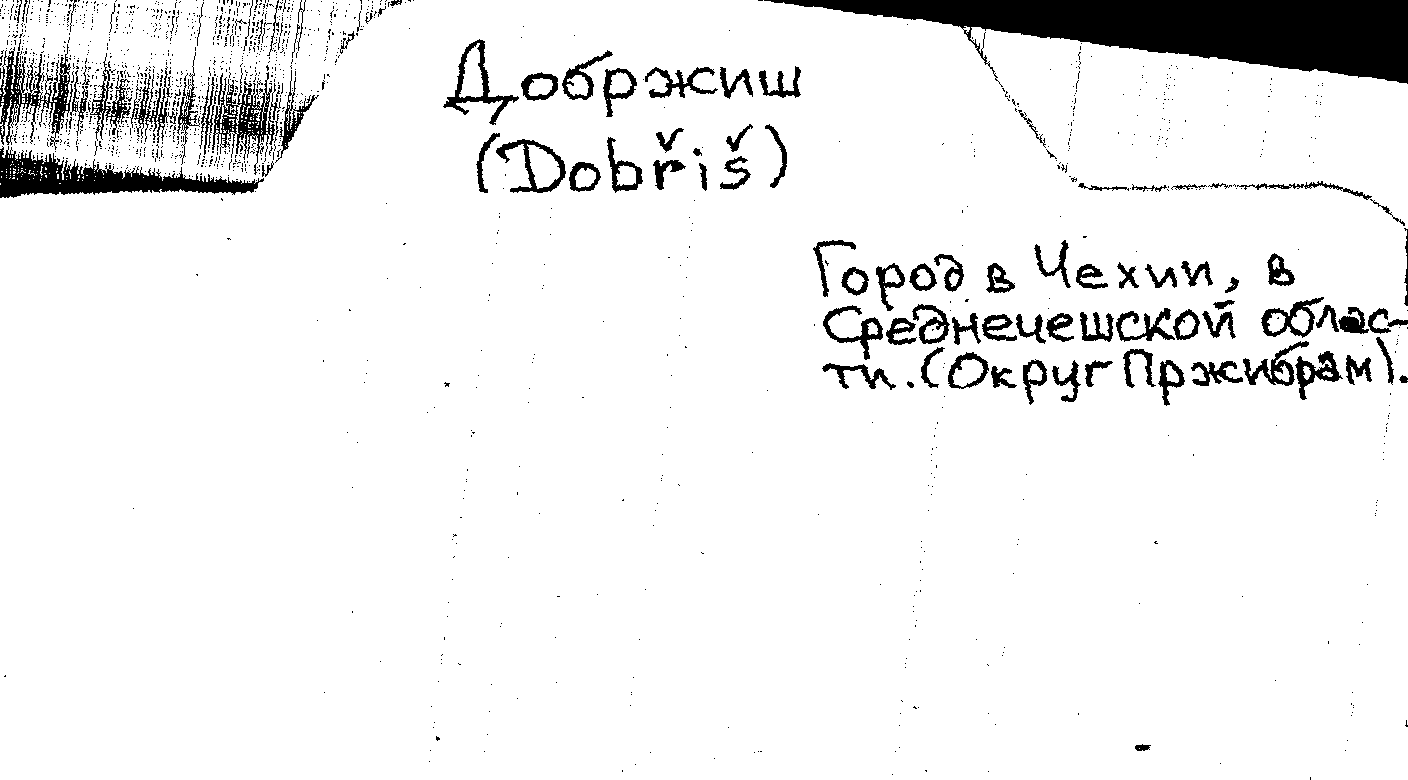 Добржиш
(Dobřiš)
Город в Чехии, в
Среднечешской облас-
ти. (Округ Пржибрам).